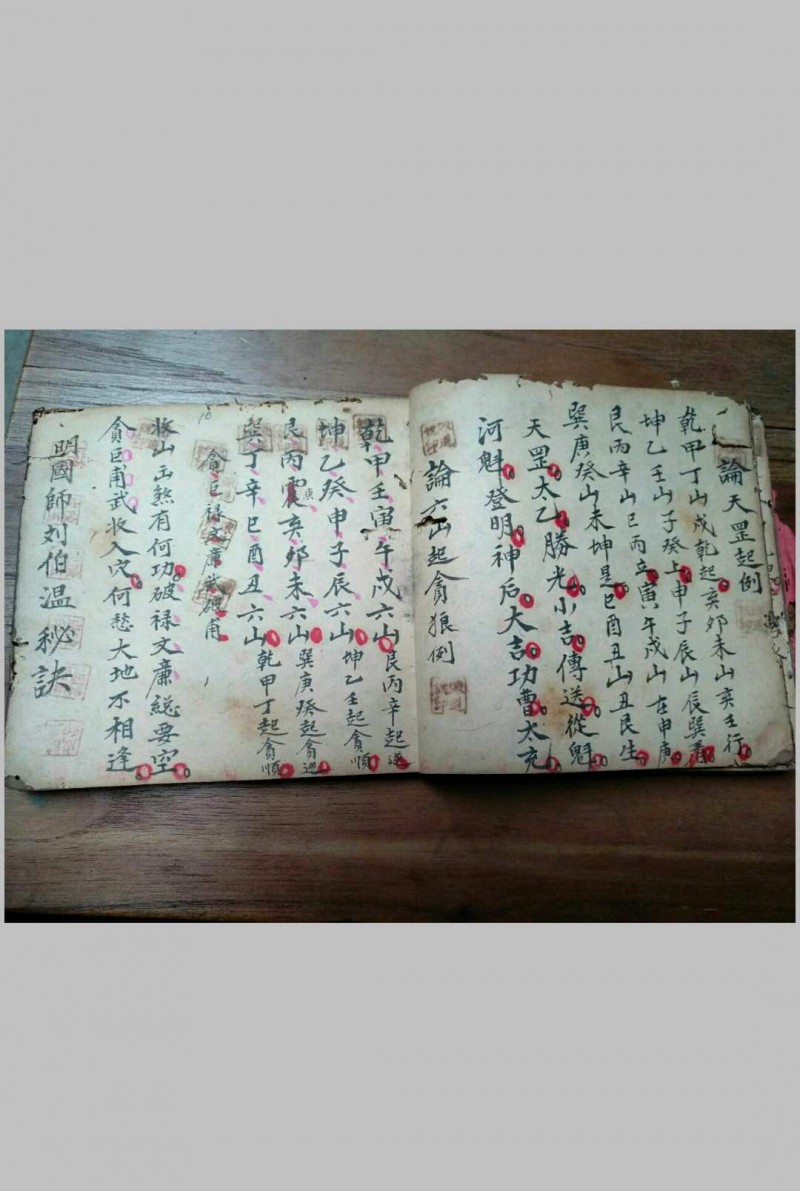 論天罡起例
乾甲丁山戌乾起亥卯未山亥壬行
坤乙壬山子癸上申子辰山辰巽看
艮丙辛山巳丙立寅午戌山在申庚
巽庚癸山未坤是巳酉丑山丑艮生
天罡太乙勝光小吉傳送從魁
河魁登明神后大吉功曹太充
論六山起貪狼例
乾甲壬寅午戌六山艮丙辛起逆
坤乙癸申子辰六山坤乙壬起貪順
艮丙震庚亥卯未六山巽庚癸起貪逆
巽丁辛巳酉丑六山乾甲丁起貪順
貪巨祿文廉武破甫
山去煞有何功破祿文廉総要空
貪巨甫武收入穴何愁大地不相逢
明國師刘伯温秘訣